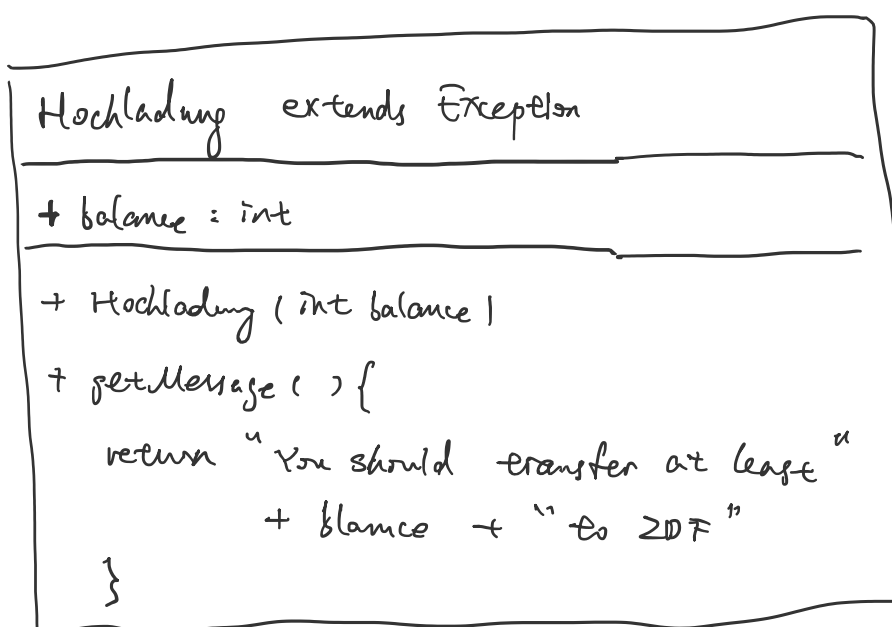 Hochladung extends Exception
+ balance : int
+ Hochladung ( int balance )
+ getMessage ( ) {
return "You should transfer at least"
+ blamce + "to ZDF"
}